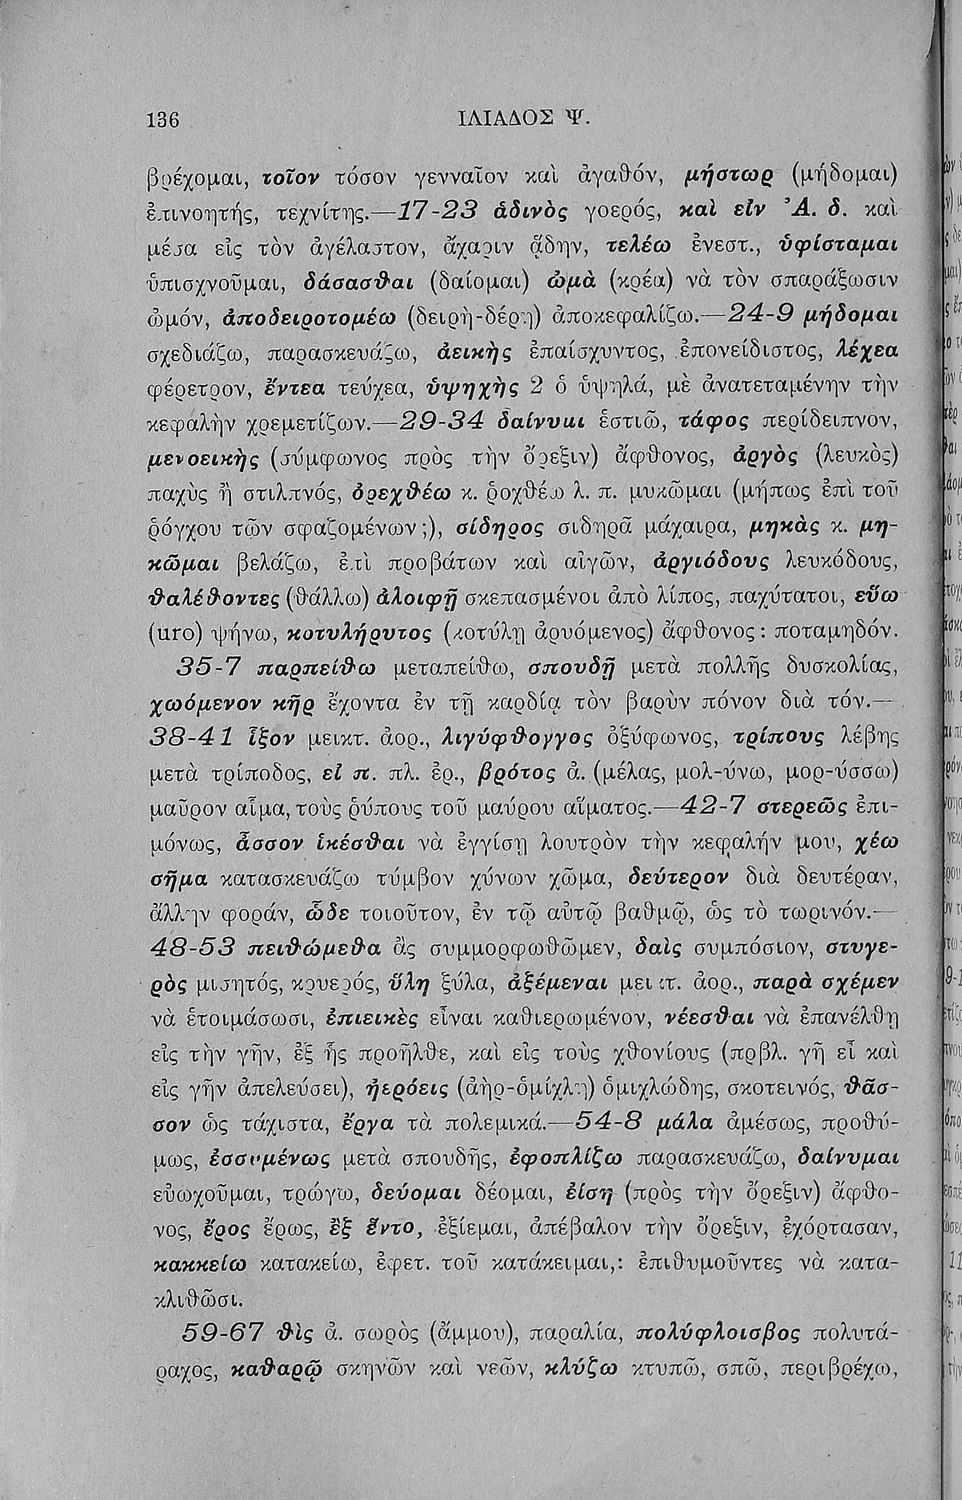 136 ΙΛΙΑΔΟΣ Ψ.
βρέχομαι, τοῖον τόσον γενναῖον καὶ ἀγαθόν, μήστωρ (μήδομαι)
ἐπινοητής, τεχνίτης.—17-23 ἁδινὸς γοερός, καὶ εἰν Ἀ. δ. καὶ
μέσα εἰς τὸν ἀγέλαστον, ἄχαριν ᾅδην, τελέω ἐνεστ., ὑφίσταμαι
ὑπισχνοῦμαι, δάσασθαι (δαίομαι) ὠμὰ (κρέα) νὰ τὸν σπαράξωσιν
ὠμόν, ἀποδειροτομέω (δειρὴ-δέρη) ἀποκεφαλίζω.—24-9 μήδομαι
σχεδιάζω, παρασκευάζω, ἀεικὴς ἐπαίσχυντος, ἐπονείδιστος, λέχεα
φέρετρον, ἔντεα τεύχεα, ὑψηχὴς 2 ὁ ὑψηλά, μὲ ἀνατεταμένην τὴν
κεφαλὴν χρεμετίζων.—29-34 δαίνυμι ἑστιῶ, τάφος περίδειπνον,
μενοεικὴς (σύμφωνος πρὸς τὴν ὄρεξιν) ἄφθονος, ἀργὸς (λευκὸς)
παχὺς ἢ στιλπνός, ὀρεχθέω κ. ῥοχθέω λ. π. μυκῶμαι (μήπως ἐπὶ τοῦ
ῥόγχου τῶν σφαζομένων;), σίδηρος σιδηρᾶ μάχαιρα, μηκὰς κ. μη-
κῶμαι βελάζω, ἐπὶ προβάτων καὶ αἰγῶν, ἀργιόδους λευκόδους,
θαλέθοντες (θάλλω) ἀλοιφῇ σκεπασμένοι ἀπὸ λίπος, παχύτατοι, εὕω
(uro) ψήνω, κοτυλήρυτος (κοτύλῃ ἀρυόμενος) ἄφθονος: ποταμηδόν.
35-7 παρπείθω μεταπείθω, σπουδῇ μετὰ πολλῆς δυσκολίας,
χωόμενον κῆρ ἔχοντα ἐν τῇ καρδίᾳ τὸν βαρὺν πόνον διὰ τόν.—
38-41 ἷξον μεικτ. ἀορ., λιγύφθογγος ὀξύφωνος, τρίπους λέβης
μετὰ τρίποδος, εἰ π. πλ. ἐρ., βρότος ἁ. (μέλας, μολ-ύνω, μορ-ύσσω)
μαῦρον αἷμα, τοὺς ῥύπους τοῦ μαύρου αἵματος.—42-7 στερεῶς ἐπι-
μόνως, ἆσσον ἱκέσθαι νὰ ἐγγίσῃ λουτρὸν τὴν κεφαλήν μου, χέω
σῆμα κατασκευάζω τύμβον χύνων χῶμα, δεύτερον διὰ δευτέραν,
ἄλλην φοράν, ὧδε τοιοῦτον, ἐν τῷ αὐτῷ βαθμῷ, ὡς τὸ τωρινόν.—
48-53 πειθώμεθα ἂς συμμορφωθῶμεν, δαὶς συμπόσιον, στυγε-
ρὸς μισητός, κρυερός, ὕλη ξύλα, ἀξέμεναι μεικτ. ἀορ., παρὰ σχέμεν
νὰ ἑτοιμάσωσι, ἐπιεικὲς εἶναι καθιερωμένον, νέεσθαι νὰ ἐπανέλθῃ
εἰς τὴν γῆν, ἐξ ἧς προῆλθε, καὶ εἰς τοὺς χθονίους (πρβλ. γῆ εἶ καὶ
εἰς γῆν ἀπελεύσει), ἠερόεις (ἀὴρ-ὁμίχλη) ὁμιχλώδης, σκοτεινός, θᾶσ-
σον ὡς τάχιστα, ἔργα τὰ πολεμικά.—54-8 μάλα ἀμέσως, προθύ-
μως, ἐσσυμένως μετὰ σπουδῆς, ἐφοπλίζω παρασκευάζω, δαίνυμαι
εὐωχοῦμαι, τρώγω, δεύομαι δέομαι, ἐίση (πρὸς τὴν ὄρεξιν) ἄφθο-
νος, ἔρος ἔρως, ἐξ ἕντο, ἐξίεμαι, ἀπέβαλον τὴν ὄρεξιν, ἐχόρτασαν,
κακκείω κατακείω, ἐφετ. τοῦ κατάκειμαι,: ἐπιθυμοῦντες νὰ κατα-
κλιθῶσι.
59-67 θὶς ἁ. σωρὸς (ἄμμου), παραλία, πολύφλοισβος πολυτά-
ραχος, καθαρῷ σκηνῶν καὶ νεῶν, κλύζω κτυπῶ, σπῶ, περιβρέχω,